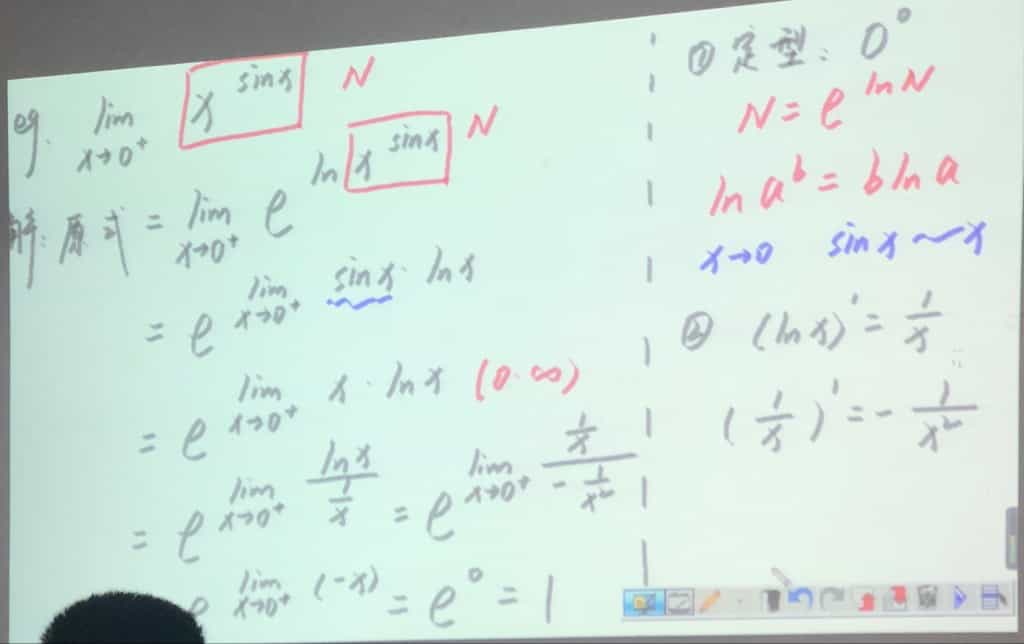 eg. lim x→0⁺ x^(sin x) N
解:原式 = lim x→0⁺ e^(ln x^(sin x)) N
= e^(lim x→0⁺ sin x · ln x)
= e^(lim x→0⁺ x · ln x) (0·∞)
= e^(lim x→0⁺ ln x / (1/x)) = e^(lim x→0⁺ (1/x) / (-1/x²))
e^(lim x→0⁺ (-x)) = e⁰ = 1
① 定型: 0⁰
N = e^(ln N)
ln a^b = b ln a
x→0 sin x ~ x
② (ln x)' = 1/x
(1/x)' = - 1/x²